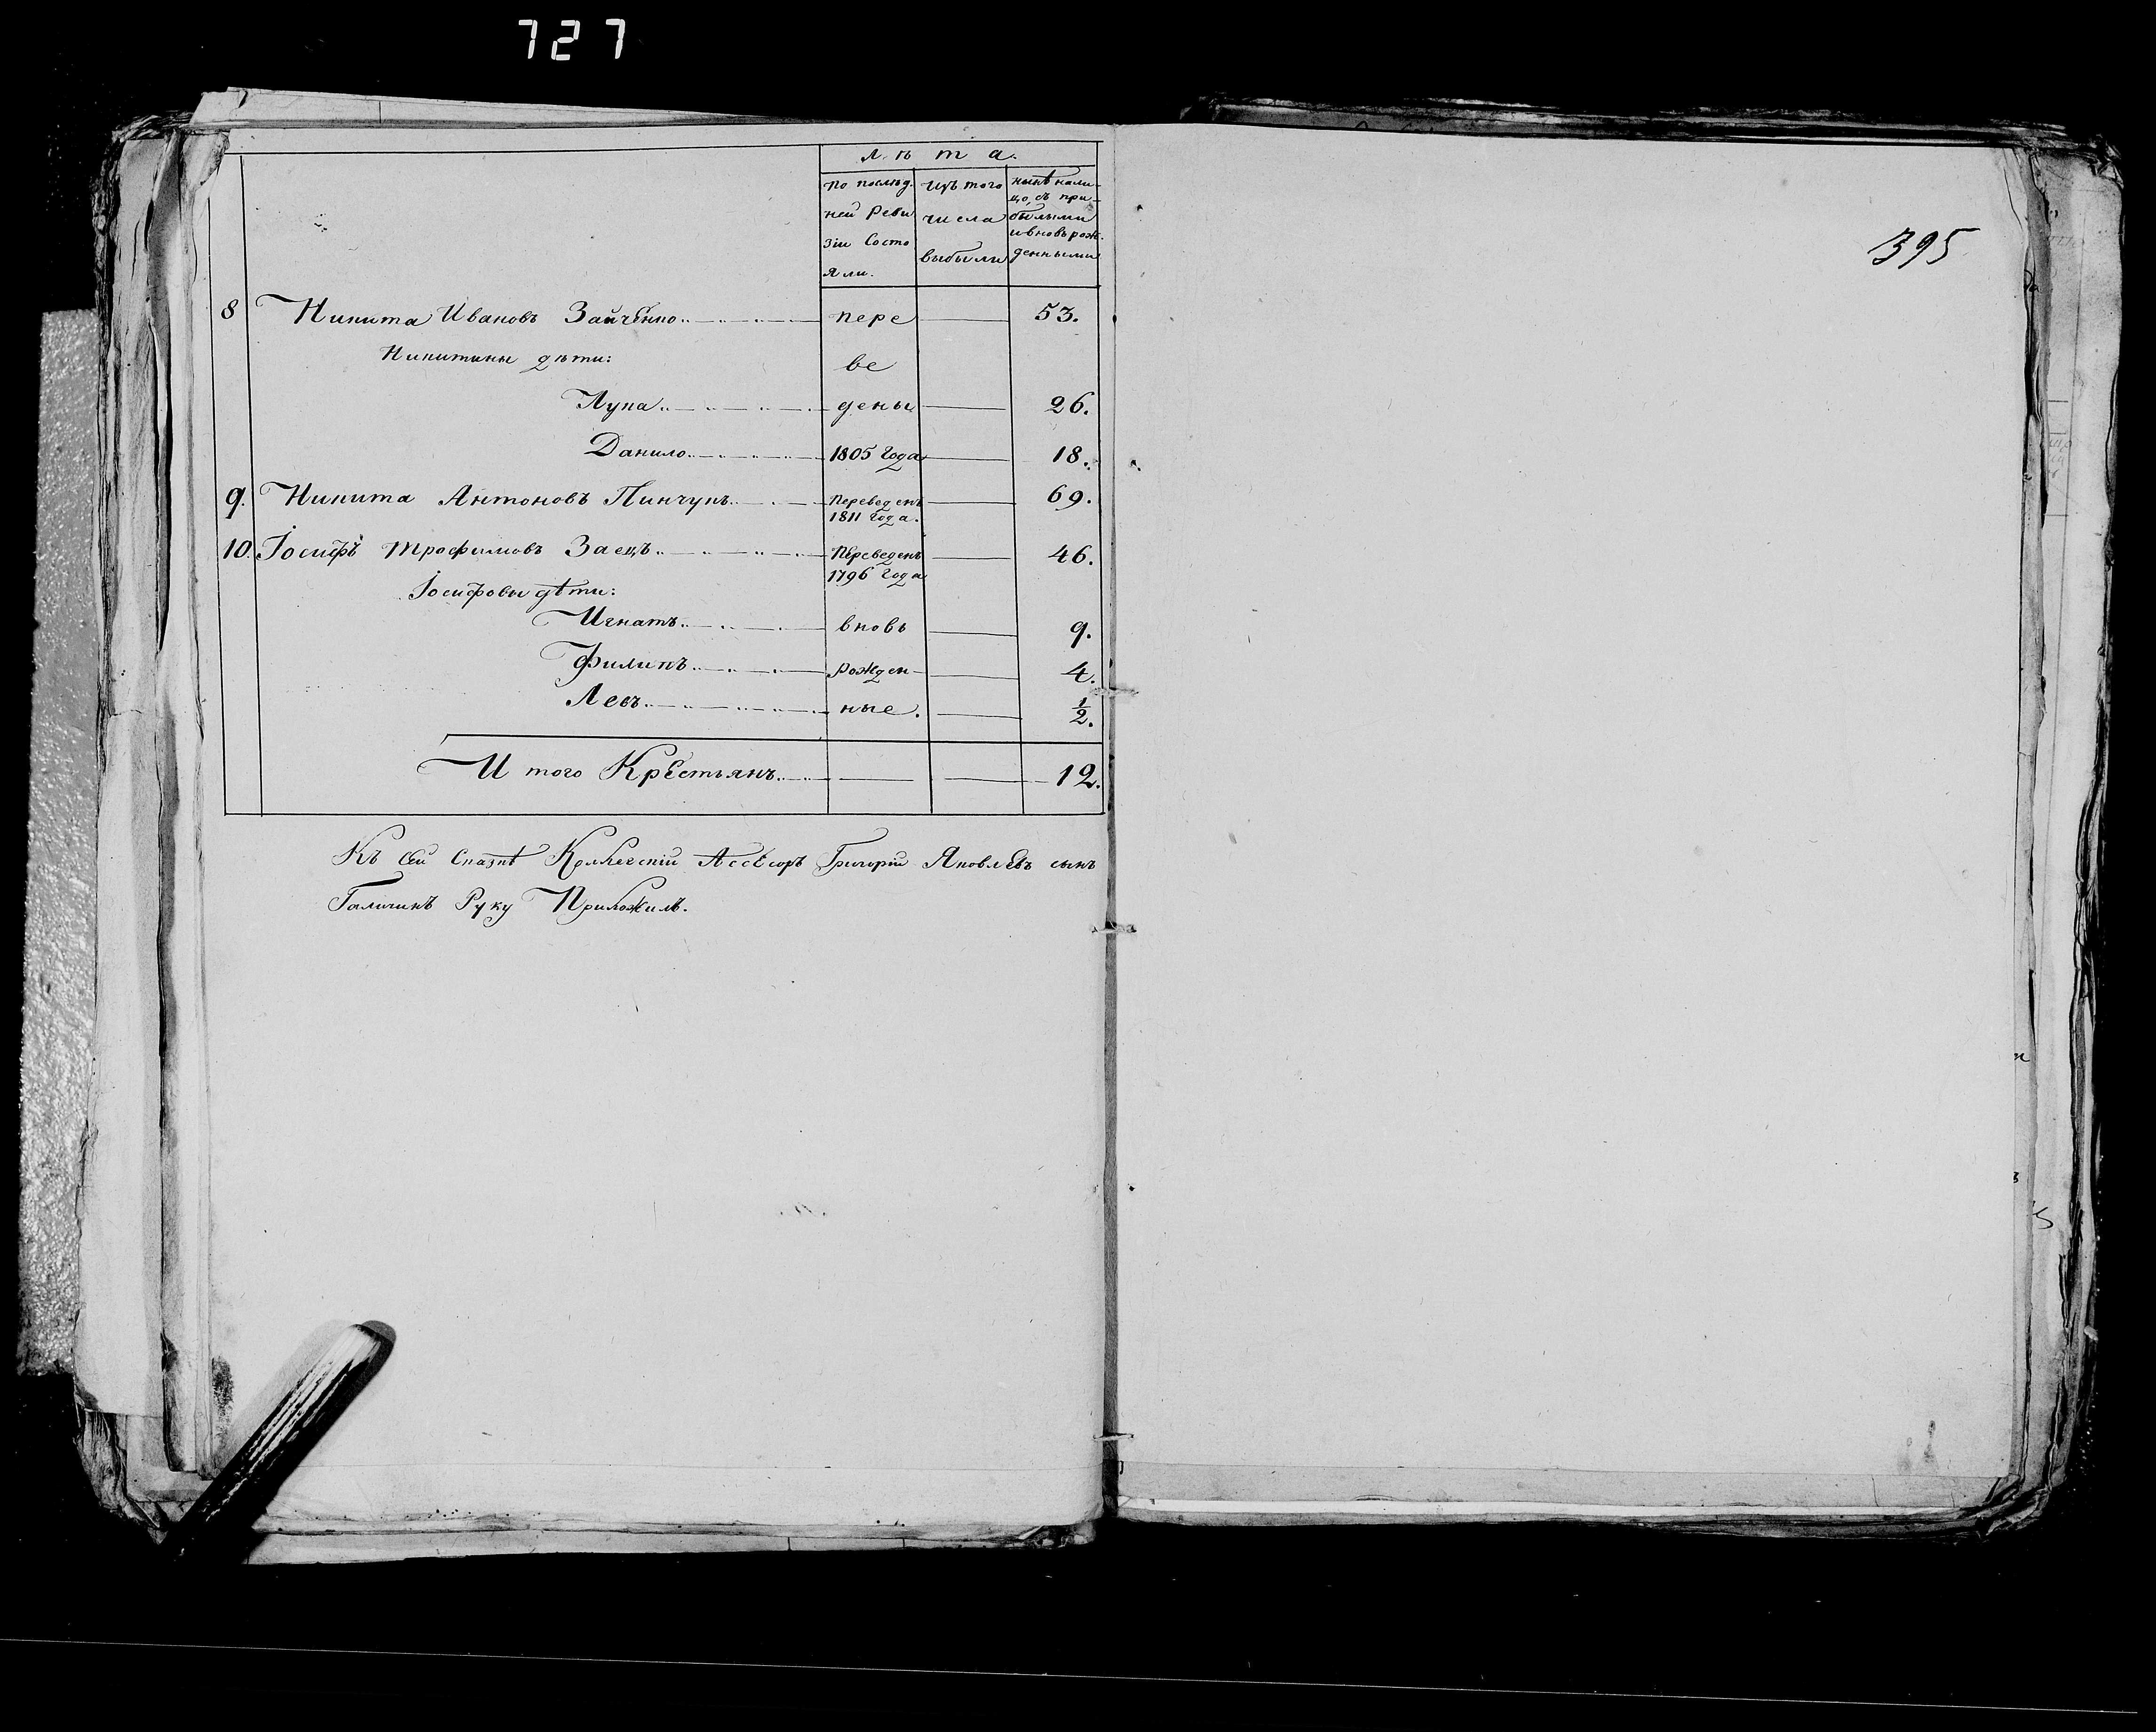 727
лѣта.
По послѣд- ней Реви зіи Состо яли.
Изъ того числа выбыли
нынѣ нали- цо, съ при- былыми и вновь рож- денными
8 Никита Ивановъ Зайченко пере 53.
Никитины дѣти: ве
Лука дены 26.
Данило 1805 Года 18.
9. Никита Антоновъ Пинчукъ Переведенъ 1811 Года. 69.
10. Іосифъ Трофимовъ Заецъ Переведенъ 1796 Года 46.
Іосифовы дѣти:
Игнатъ вновь 9.
Филипъ рожден- 4.
Левъ ные. 1/2.
И того Крестьянъ 12.
Къ сей Сказкѣ Коллежскій Ассесоръ Григорій Яковлевъ сынъ
Галагинъ Руку Приложилъ.
395